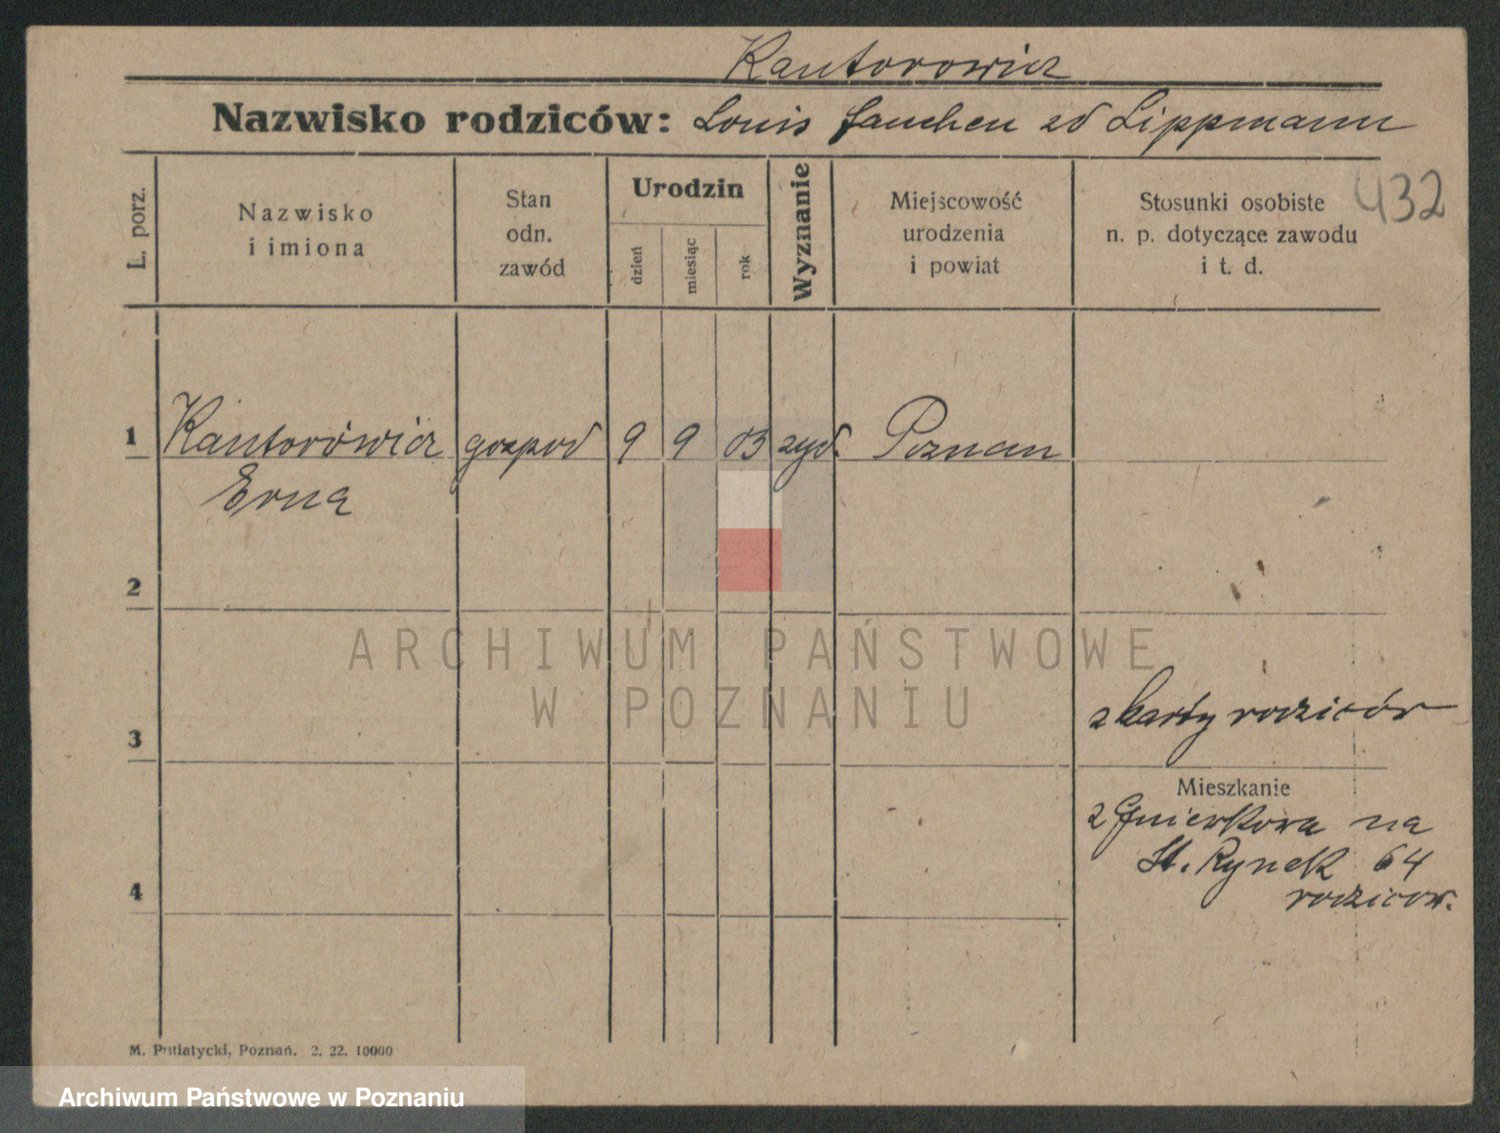 Kantorowicz
Nazwisko rodziców: Louis Janchen zd Lippmann
432
L. porz.
Nazwisko
i imiona
Stan
odn.
zawód
Urodzin
dzień
miesiąc
rok
Wyznanie
Miejscowość
urodzenia
i powiat
Stosunki osobiste
n. p. dotyczące zawodu
i t. d.
1 Kantorowicz gospod 9 9 03 zyd. Poznan
Erna
2
ARCHIWUM PAŃSTWOWE
W POZNANIU
z karty rodziców
3
Mieszkanie
z na
St. Rynek 64
4
rodzicow.
M. Putiatycki, Poznań. 2. 22. 10000
Archiwum Państwowe w Poznaniu